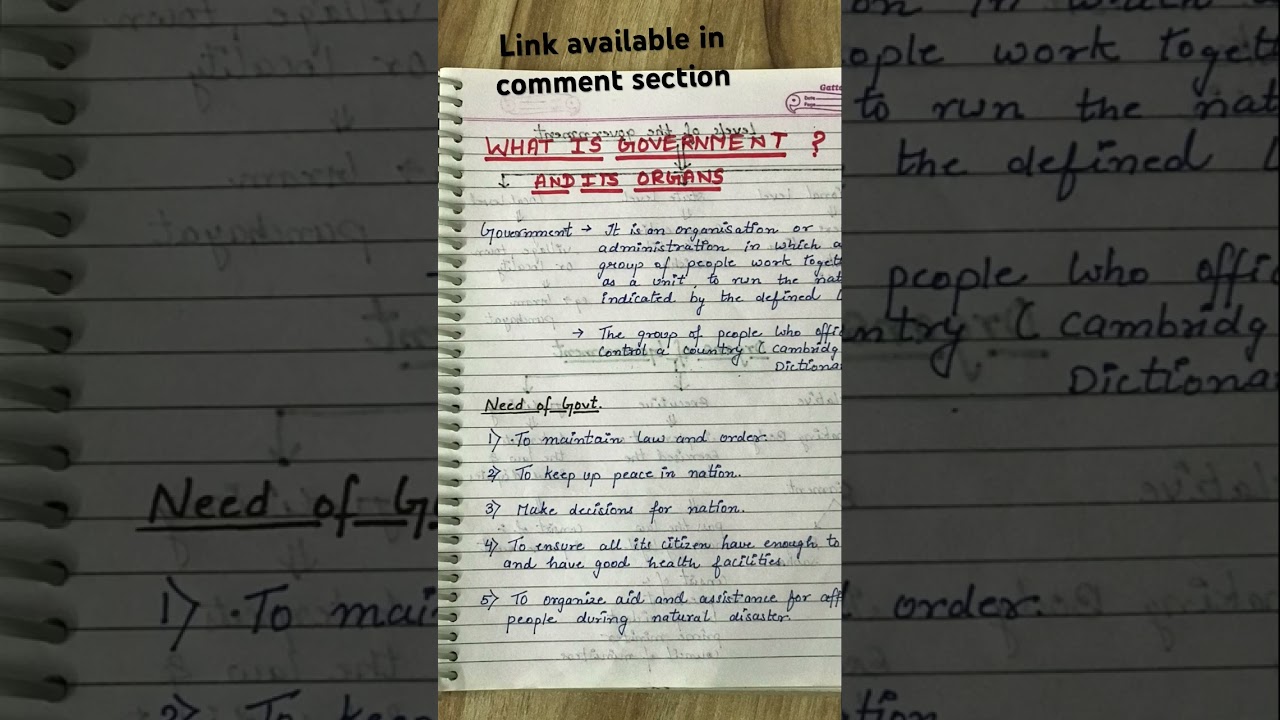 Link available in
comment section
Gatto
Date
Page
WHAT IS GOVERNMENT ?
AND ITS ORGANS
Government → It is an organisation or
administration in which a
group of people work togeth
as a unit, to run the nat
indicated by the defined
→ The group of people who offi
control a country ( Cambridg
Dictiona
Need of Govt.
1) To maintain law and order.
2) To keep up peace in nation.
3) Make decisions for nation.
4) To ensure all its citizen have enough to
and have good health facilities.
5) To organize aid and assistance for aff
people during natural disaster.